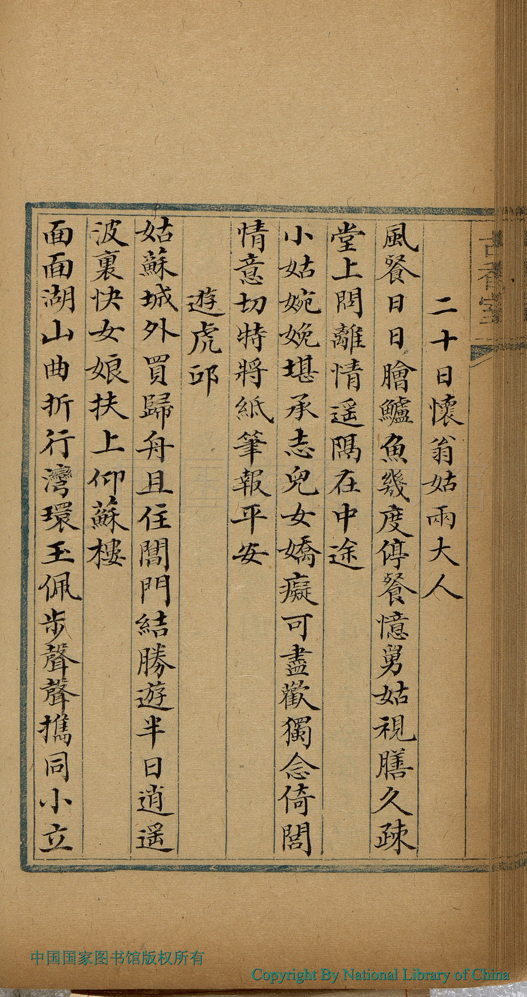 二十日懷翁姑兩大人
風餐日日膾鱸魚幾度停餐憶舅姑視膳久疎
堂上問離情遥隅在中途
小姑婉娩堪承志兒女嬌癡可盡歡獨念倚閭
情意切特將紙筆報平安
遊虎邱
姑蘇城外買歸舟且住閶門結勝遊半日逍遥
波裏快女娘扶上仰蘇樓
面面湖山曲折行灣環玉佩步聲聲携同小立
中国国家图书馆版权所有
Copyright By National Library of China